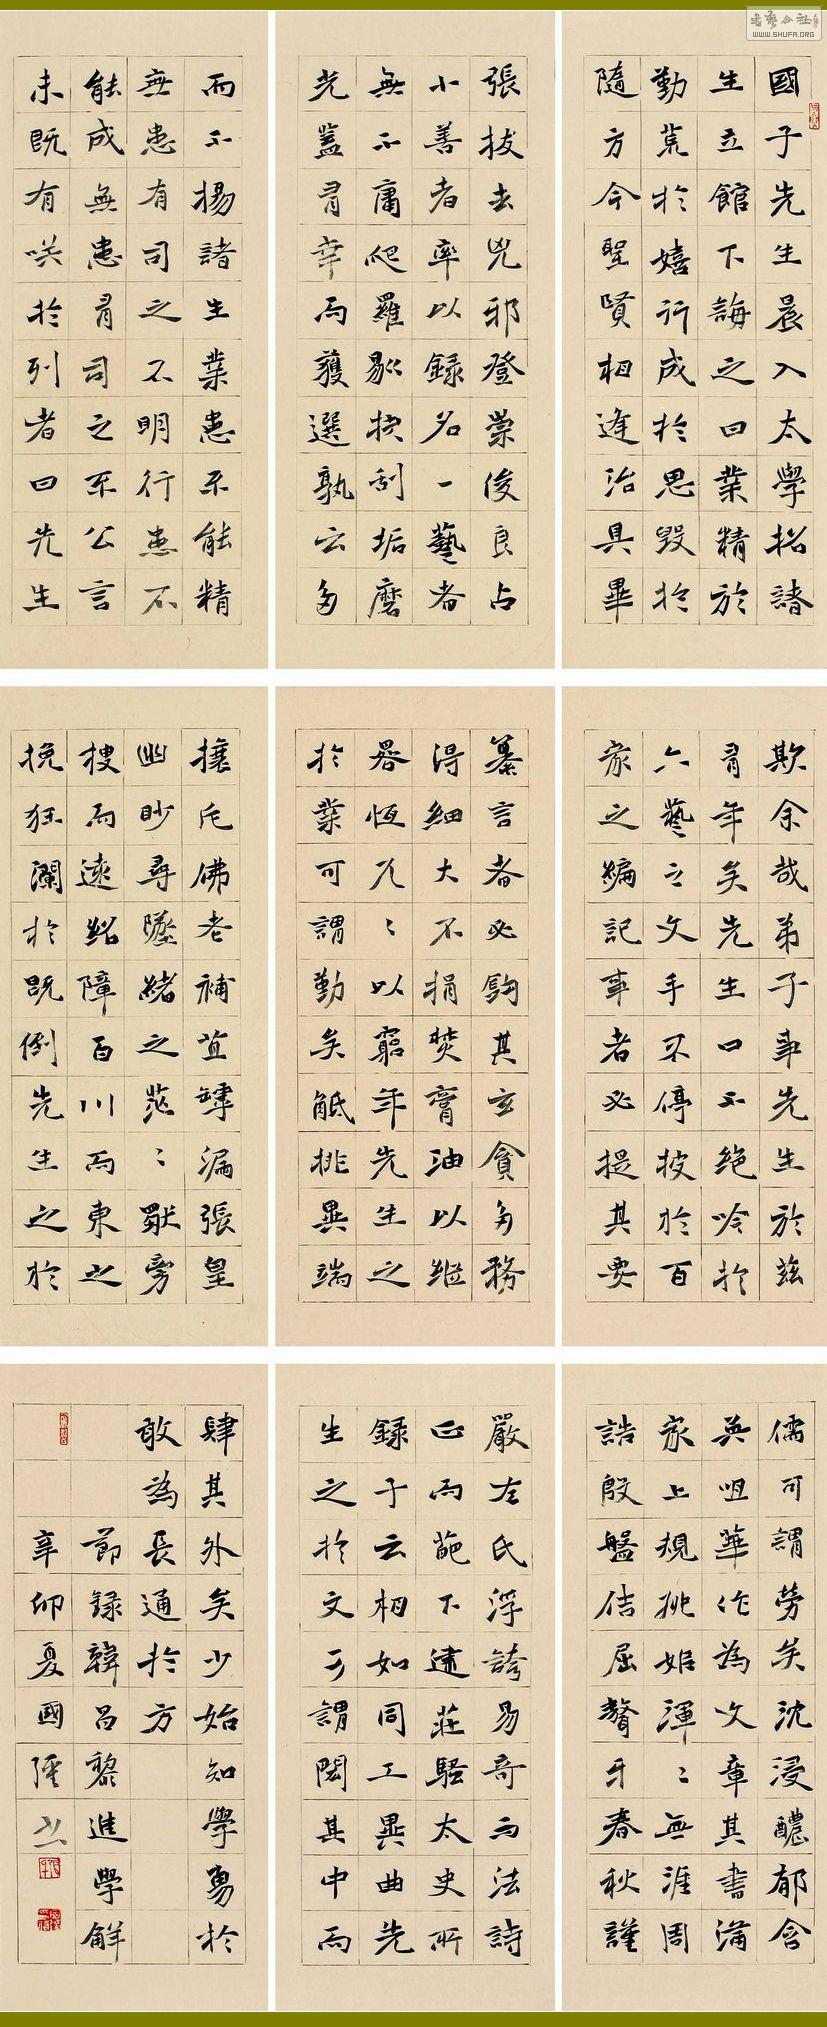 書藝公社
WWW.SHUFA.ORG
國子先生晨入太學招諸
生立館下誨之曰業精於
勤荒於嬉行成於思毀於
隨方今聖賢相逢治具畢
張拔去兇邪登崇俊良占
小善者率以錄名一藝者
無不庸爬羅剔抉刮垢磨
光蓋有幸而獲選孰云多
而不揚諸生業患不能精
無患有司之不明行患不
能成無患有司之不公言
未既有咲於列者曰先生
欺余哉弟子事先生於茲
有年矣先生口不絕吟於
六藝之文手不停披於百
家之編記事者必提其要
纂言者必鉤其玄貪多務
得細大不捐焚膏油以繼
晷恆兀〻以窮年先生之
於業可謂勤矣觝排異端
攘斥佛老補苴罅漏張皇
幽眇尋墜緒之茫〻獨旁
搜而遠紹障百川而東之
挽狂瀾於既倒先生之於
儒可謂勞矣沈浸醲郁含
英咀華作為文章其書滿
家上規姚姒渾〻無涯周
誥殷盤佶屈聱牙春秋謹
嚴左氏浮誇易奇而法詩
正而葩下逮莊騷太史所
錄子云相如同工異曲先
生之於文可謂閎其中而
肆其外矣少始知學勇於
敢為長通於方
節錄韓昌黎進學解
辛卯夏國書